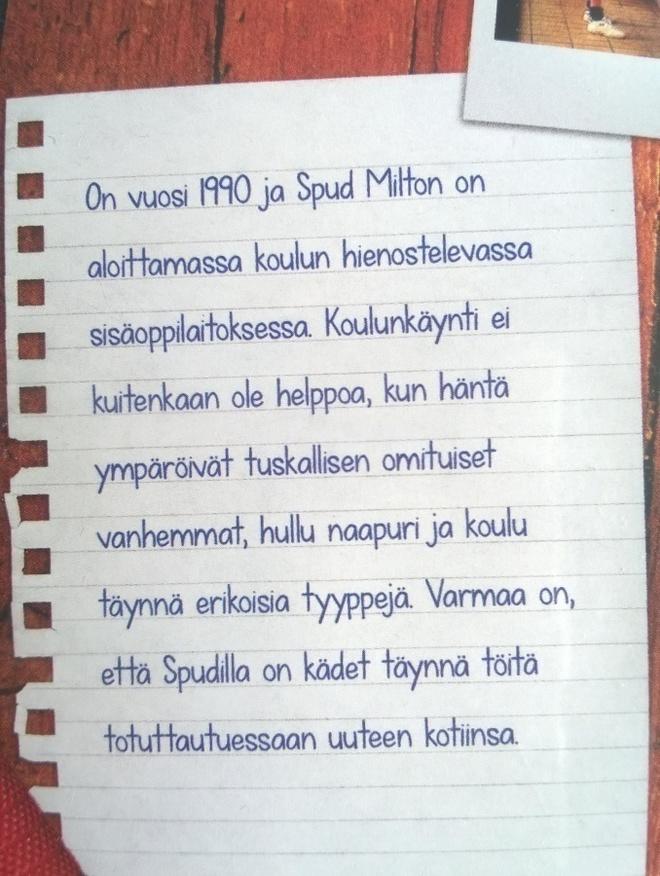 On vuosi 1990 ja Spud Milton on
aloittamassa koulun hienostelevassa
sisäoppilaitoksessa. Koulunkäynti ei
kuitenkaan ole helppoa, kun häntä
ympäröivät tuskallisen omituiset
vanhemmat, hullu naapuri ja koulu
täynnä erikoisia tyyppejä. Varmaa on,
että Spudilla on kädet täynnä töitä
totuttautuessaan uuteen kotiinsa.